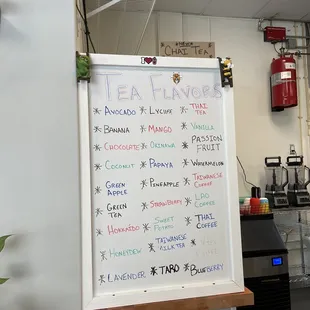 CHAI TEA
I
TEA FLAVORS
* AVOCADO * LYCHEE * THAI TEA
* BANANA * MANGO * VANILLA
* CHOCOLATE * OKINAWA * PASSION FRUIT
* COCONUT * PAPAYA * WATERMELON
* GREEN APPLE * PINEAPPLE * TAIWANESE COFFEE
* GREEN TEA * STRAWBERRY * LAO COFFEE
* HOKKAIDO * SWEET POTATO * THAI COFFEE
* HONEYDEW * TAIWANESE MILK TEA
* LAVENDER * TARO * BLUEBERRY